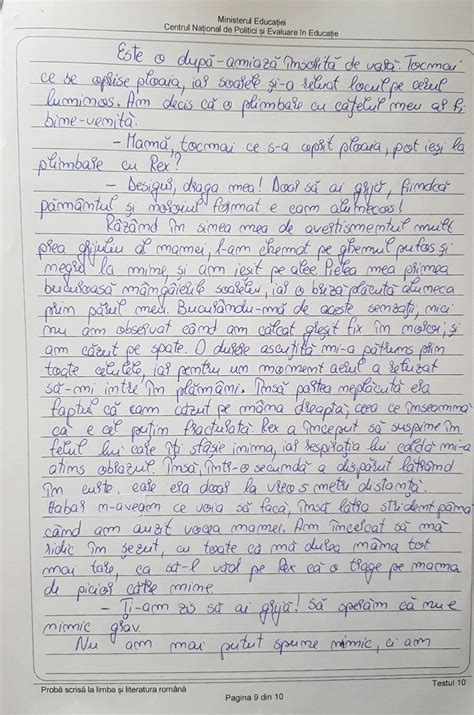 Ministerul Educației
Centrul Național de Politici și Evaluare în Educație
Este o după-amiază însorită de vară. Tocmai
ce se oprise ploaia, iar soarele și-a reluat locul pe cerul
luminos. Am decis că o plimbare cu cățelul meu ar fi
bine-venită.
- Mamă, tocmai ce s-a oprit ploaia, pot ieși la
plimbare cu Rex?
- Desigur, draga mea! Doar să ai grijă, fiindcă
pământul și noroiul format e cam alunecos!
Râzând în sinea mea de avertismentul mult
prea grijuliu al mamei, l-am chemat pe ghemul pufos și
negru la mine, și am ieșit pe alee. Pielea mea primea
bucuroasă mângâierile soarelui, iar o briză plăcută aluneca
prin părul meu. Bucurându-mă de aceste senzații, nici
nu am observat când am călcat greșit fix în noroi, și
am căzut pe spate. O durere ascuțită mi-a pătruns prin
toate celulele, iar pentru un moment aerul a refuzat
să-mi intre în plămâni. Însă partea neplăcută era
faptul că eam căzut pe mâna dreaptă, ceea ce înseamnă
că e cel puțin fracturată. Rex a început să suspine în
felul lui care îți sfâșie inima, iar respirația lui caldă mi-a
atins obrazul. Însă, într-o secundă a dispărut lătrând
în curte, care era doar la vreo 5 metri distanță.
Habar n-aveam ce voia să facă, însă lătra strident până
când am auzit vocea mamei. Am încercat să mă
ridic în șezut, cu toate că mă durea mâna tot
mai tare, ca să-l văd pe Rex că o trage pe mama
de picior către mine.
- Ți-am zis să ai grijă! Să sperăm că nu e
nimic grav.
Nu am mai putut spune nimic, ci am
Probă scrisă la limba și literatura română
Testul 10
Pagina 9 din 10